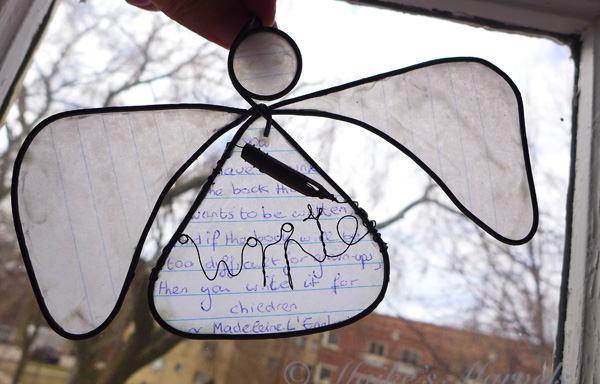 have
the book th
wants to be written
d if the book will be
too difficult for grown-ups,
then you write it for
children
Madeleine L'Engl
write